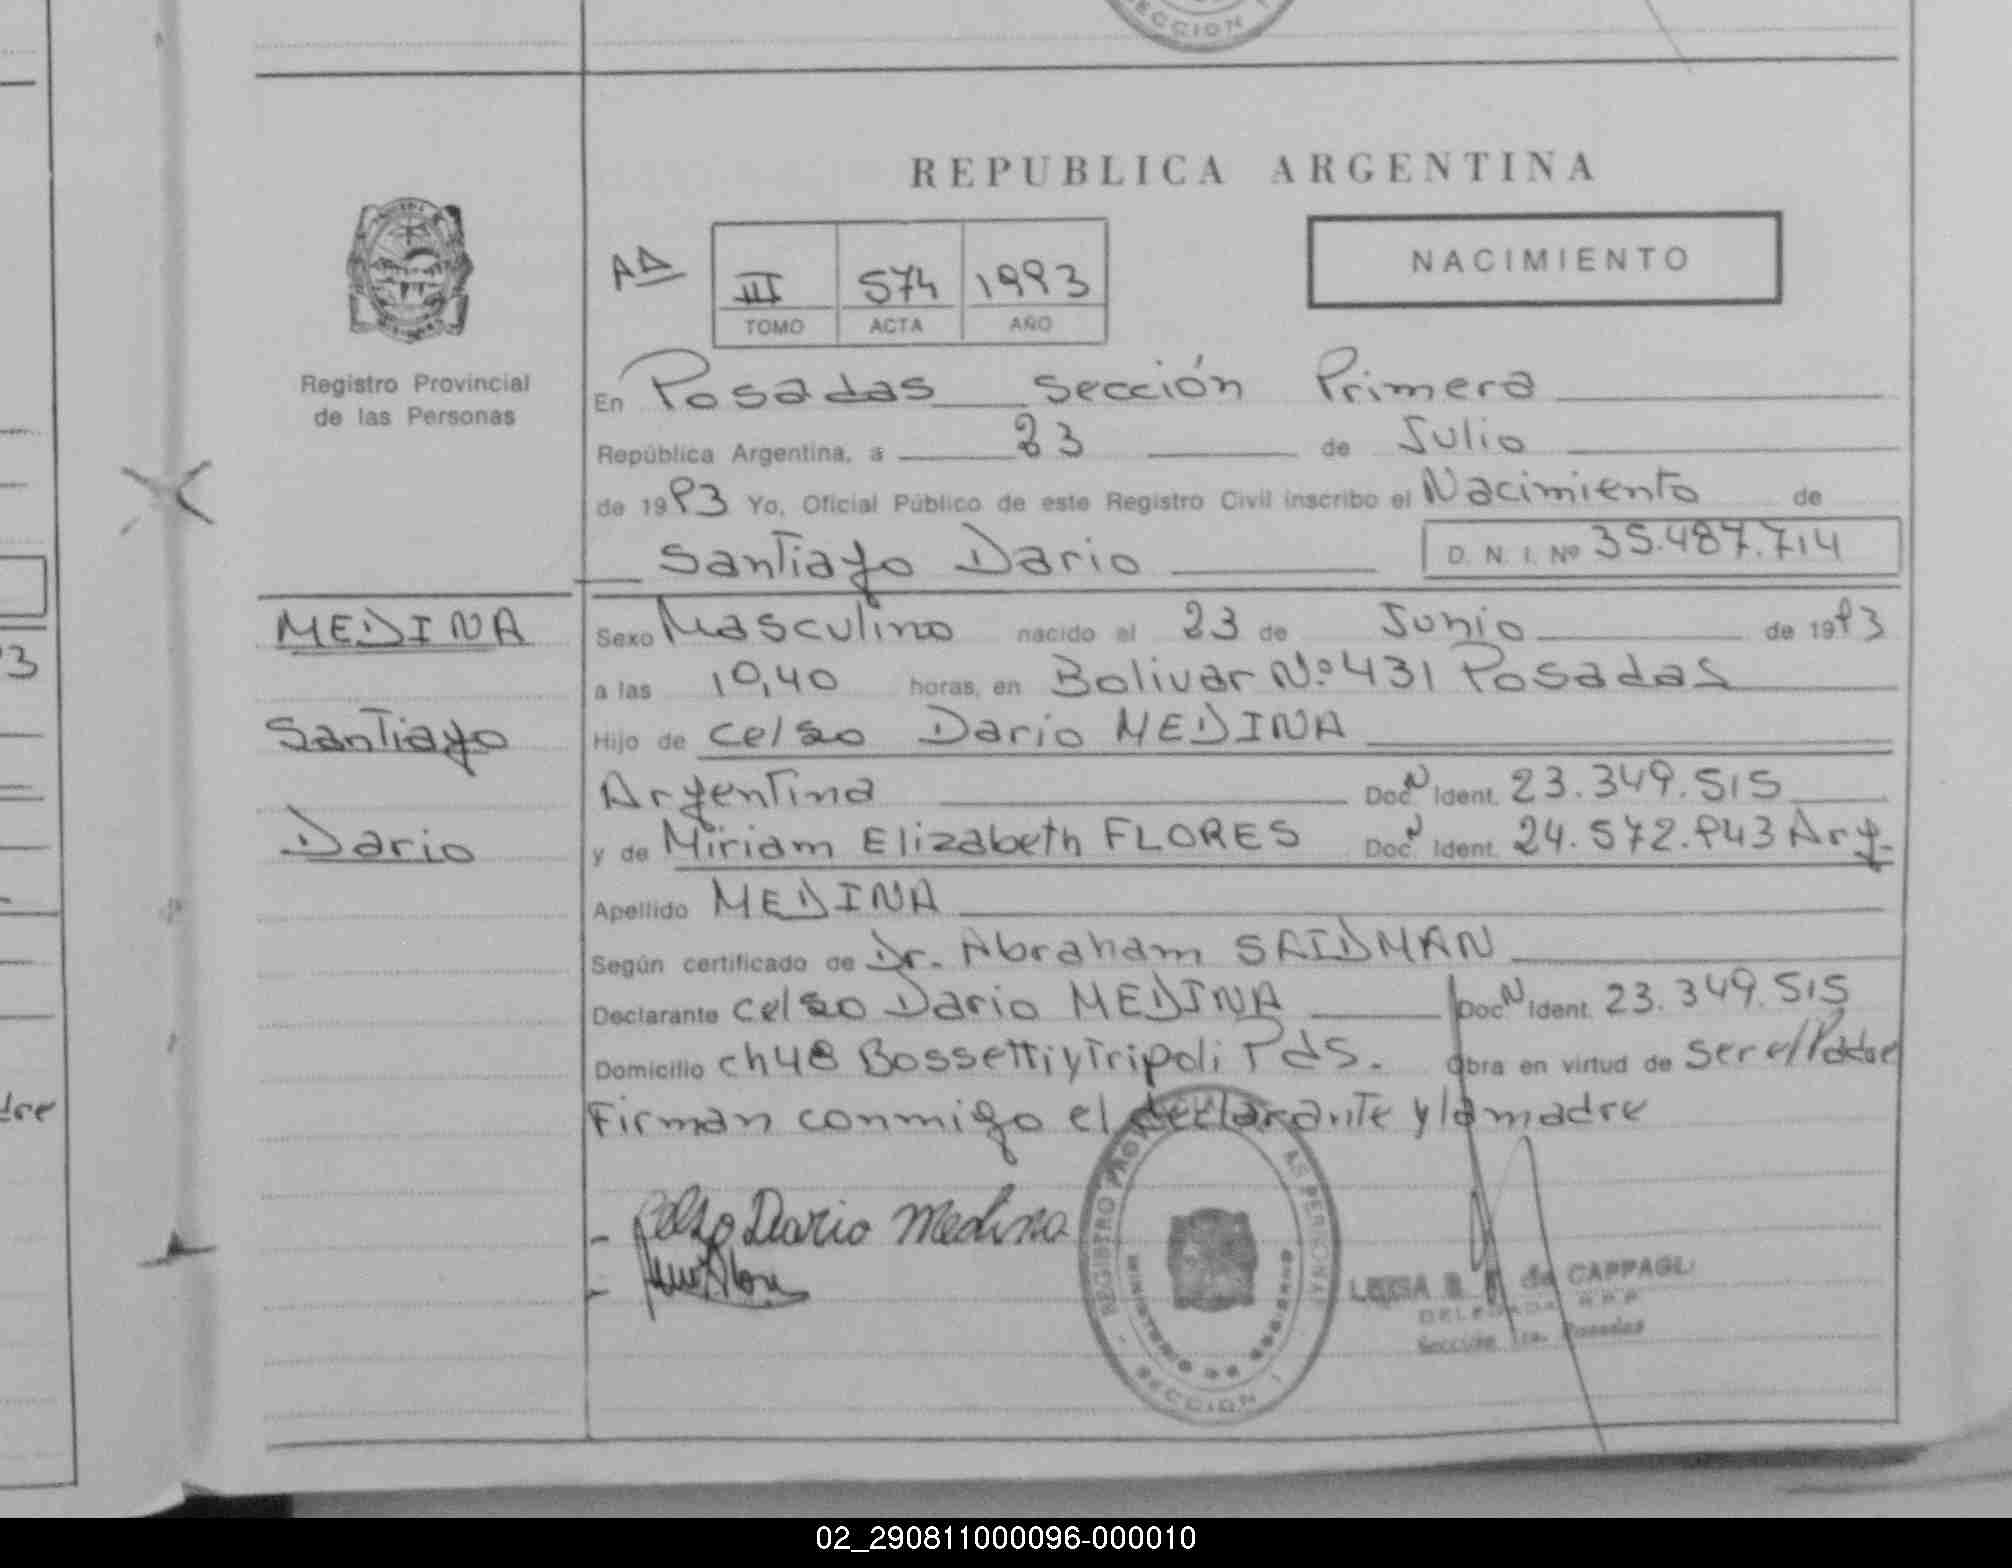 SECCION
REPUBLICA ARGENTINA
NACIMIENTO
III 574 1993
TOMO ACTA AÑO
Registro Provincial
de las Personas
En Posadas sección Primera
República Argentina, a 23 de Julio
de 1993 Yo, Oficial Público de este Registro Civil inscribo el Nacimiento de
Santiago Dario D. N. I. Nº 35.487.714
MEDINA
Santiago
Dario
Sexo Masculino nacido el 23 de Junio de 1993
a las 10,40 horas, en Bolivar Nº 431 Posadas
Hijo de Celso Dario MEDINA
Argentina Doc. N Ident. 23.349.515
y de Miriam Elizabeth FLORES Doc. N Ident. 24.572.943 Arg.
Apellido MEDINA
Según certificado de Dr. Abraham SAIDMAN
Declarante Celso Dario MEDINA Doc. N Ident. 23.349.515
Domicilio ch 48 Bossetti y Tripoli Pds. Obra en virtud de ser el Padre
Firman conmigo el declarante y la madre
- Celso Dario Medina
REGISTRO AS PERSONA
MINISTERIO DE GOBIERNO
SECCION 1
de CAPPAGLI
DELEGADA R.R.P.
Sección 1ra. Posadas
3
dre
02_290811000096-000010